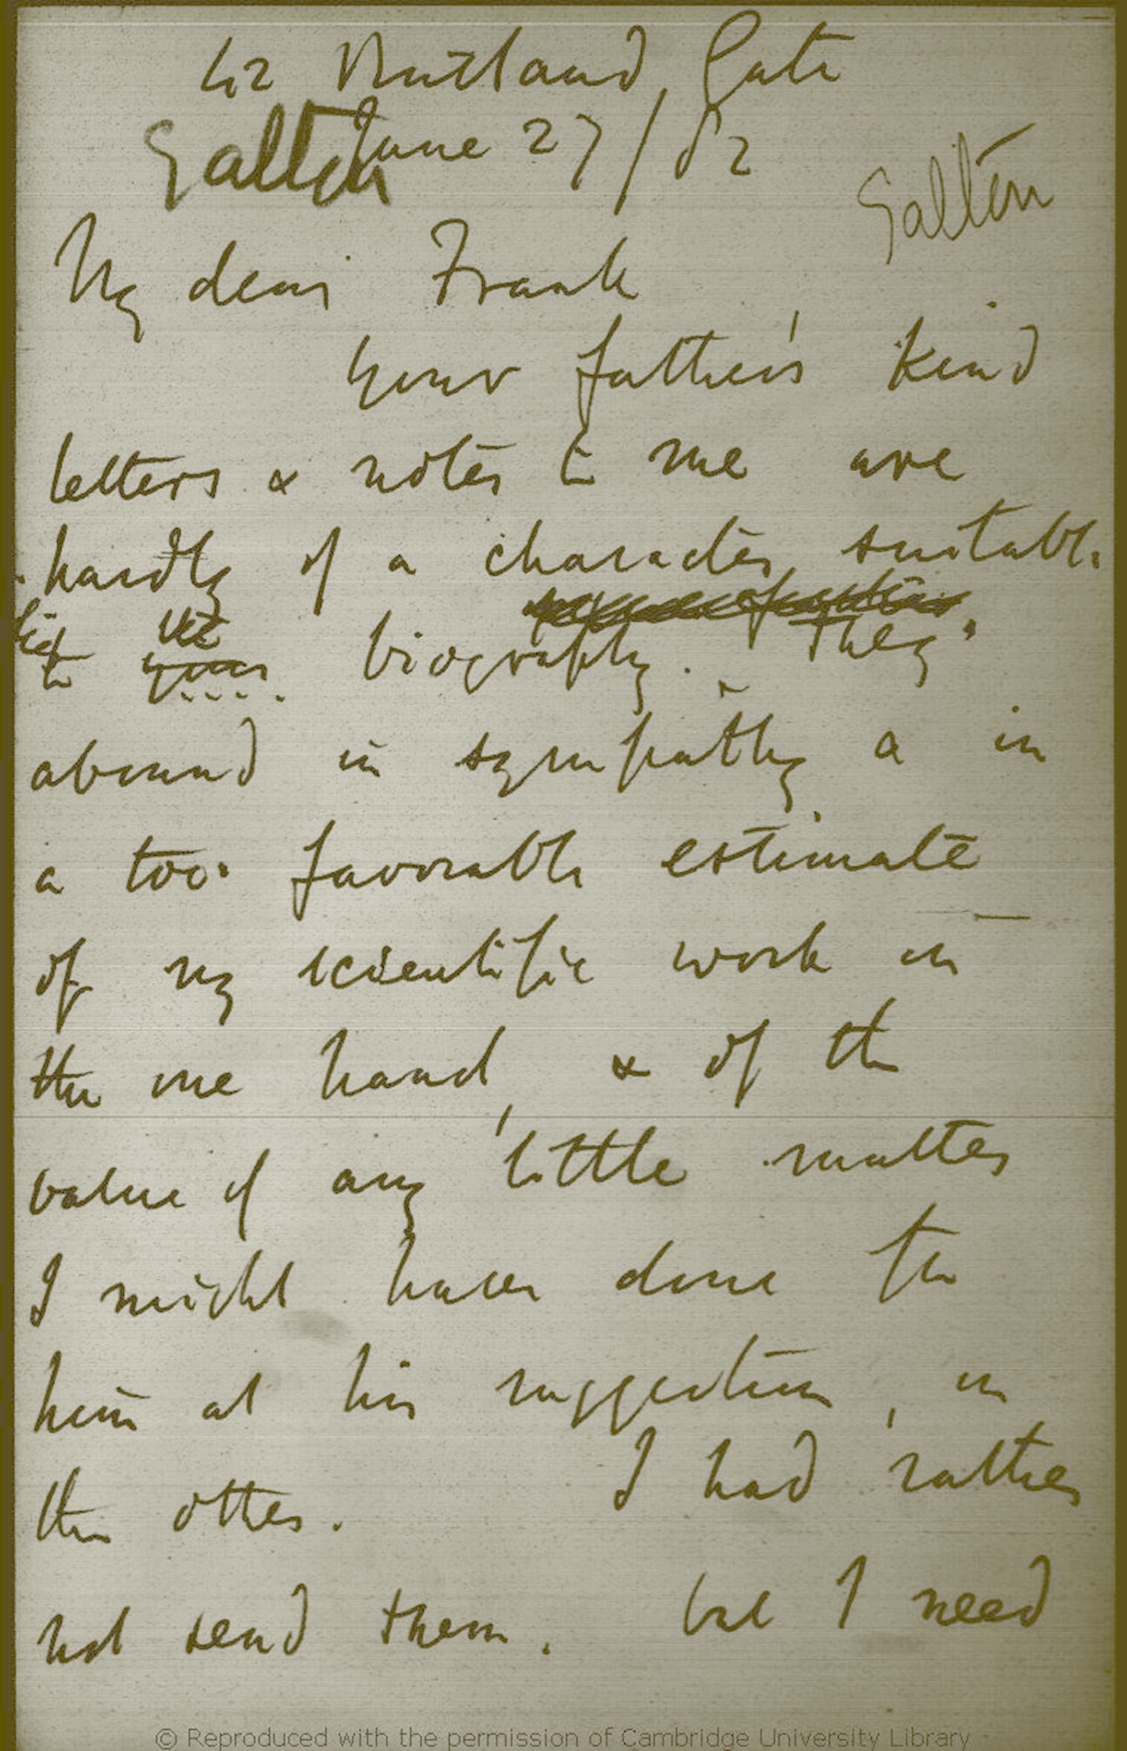 42 Rutland Gate
June 27/82
Galton
Galton
My dear Frank
your father's kind
letters & notes to me are
hardly of a character suitable
to your biography. They
abound in sympathy & in
a too favorable estimate
of my scientific work on
the one hand, & of the
value of any little matter
I might have done for
him at his suggestion, on
the other. I had rather
not send them. but I need
© Reproduced with the permission of Cambridge University Library